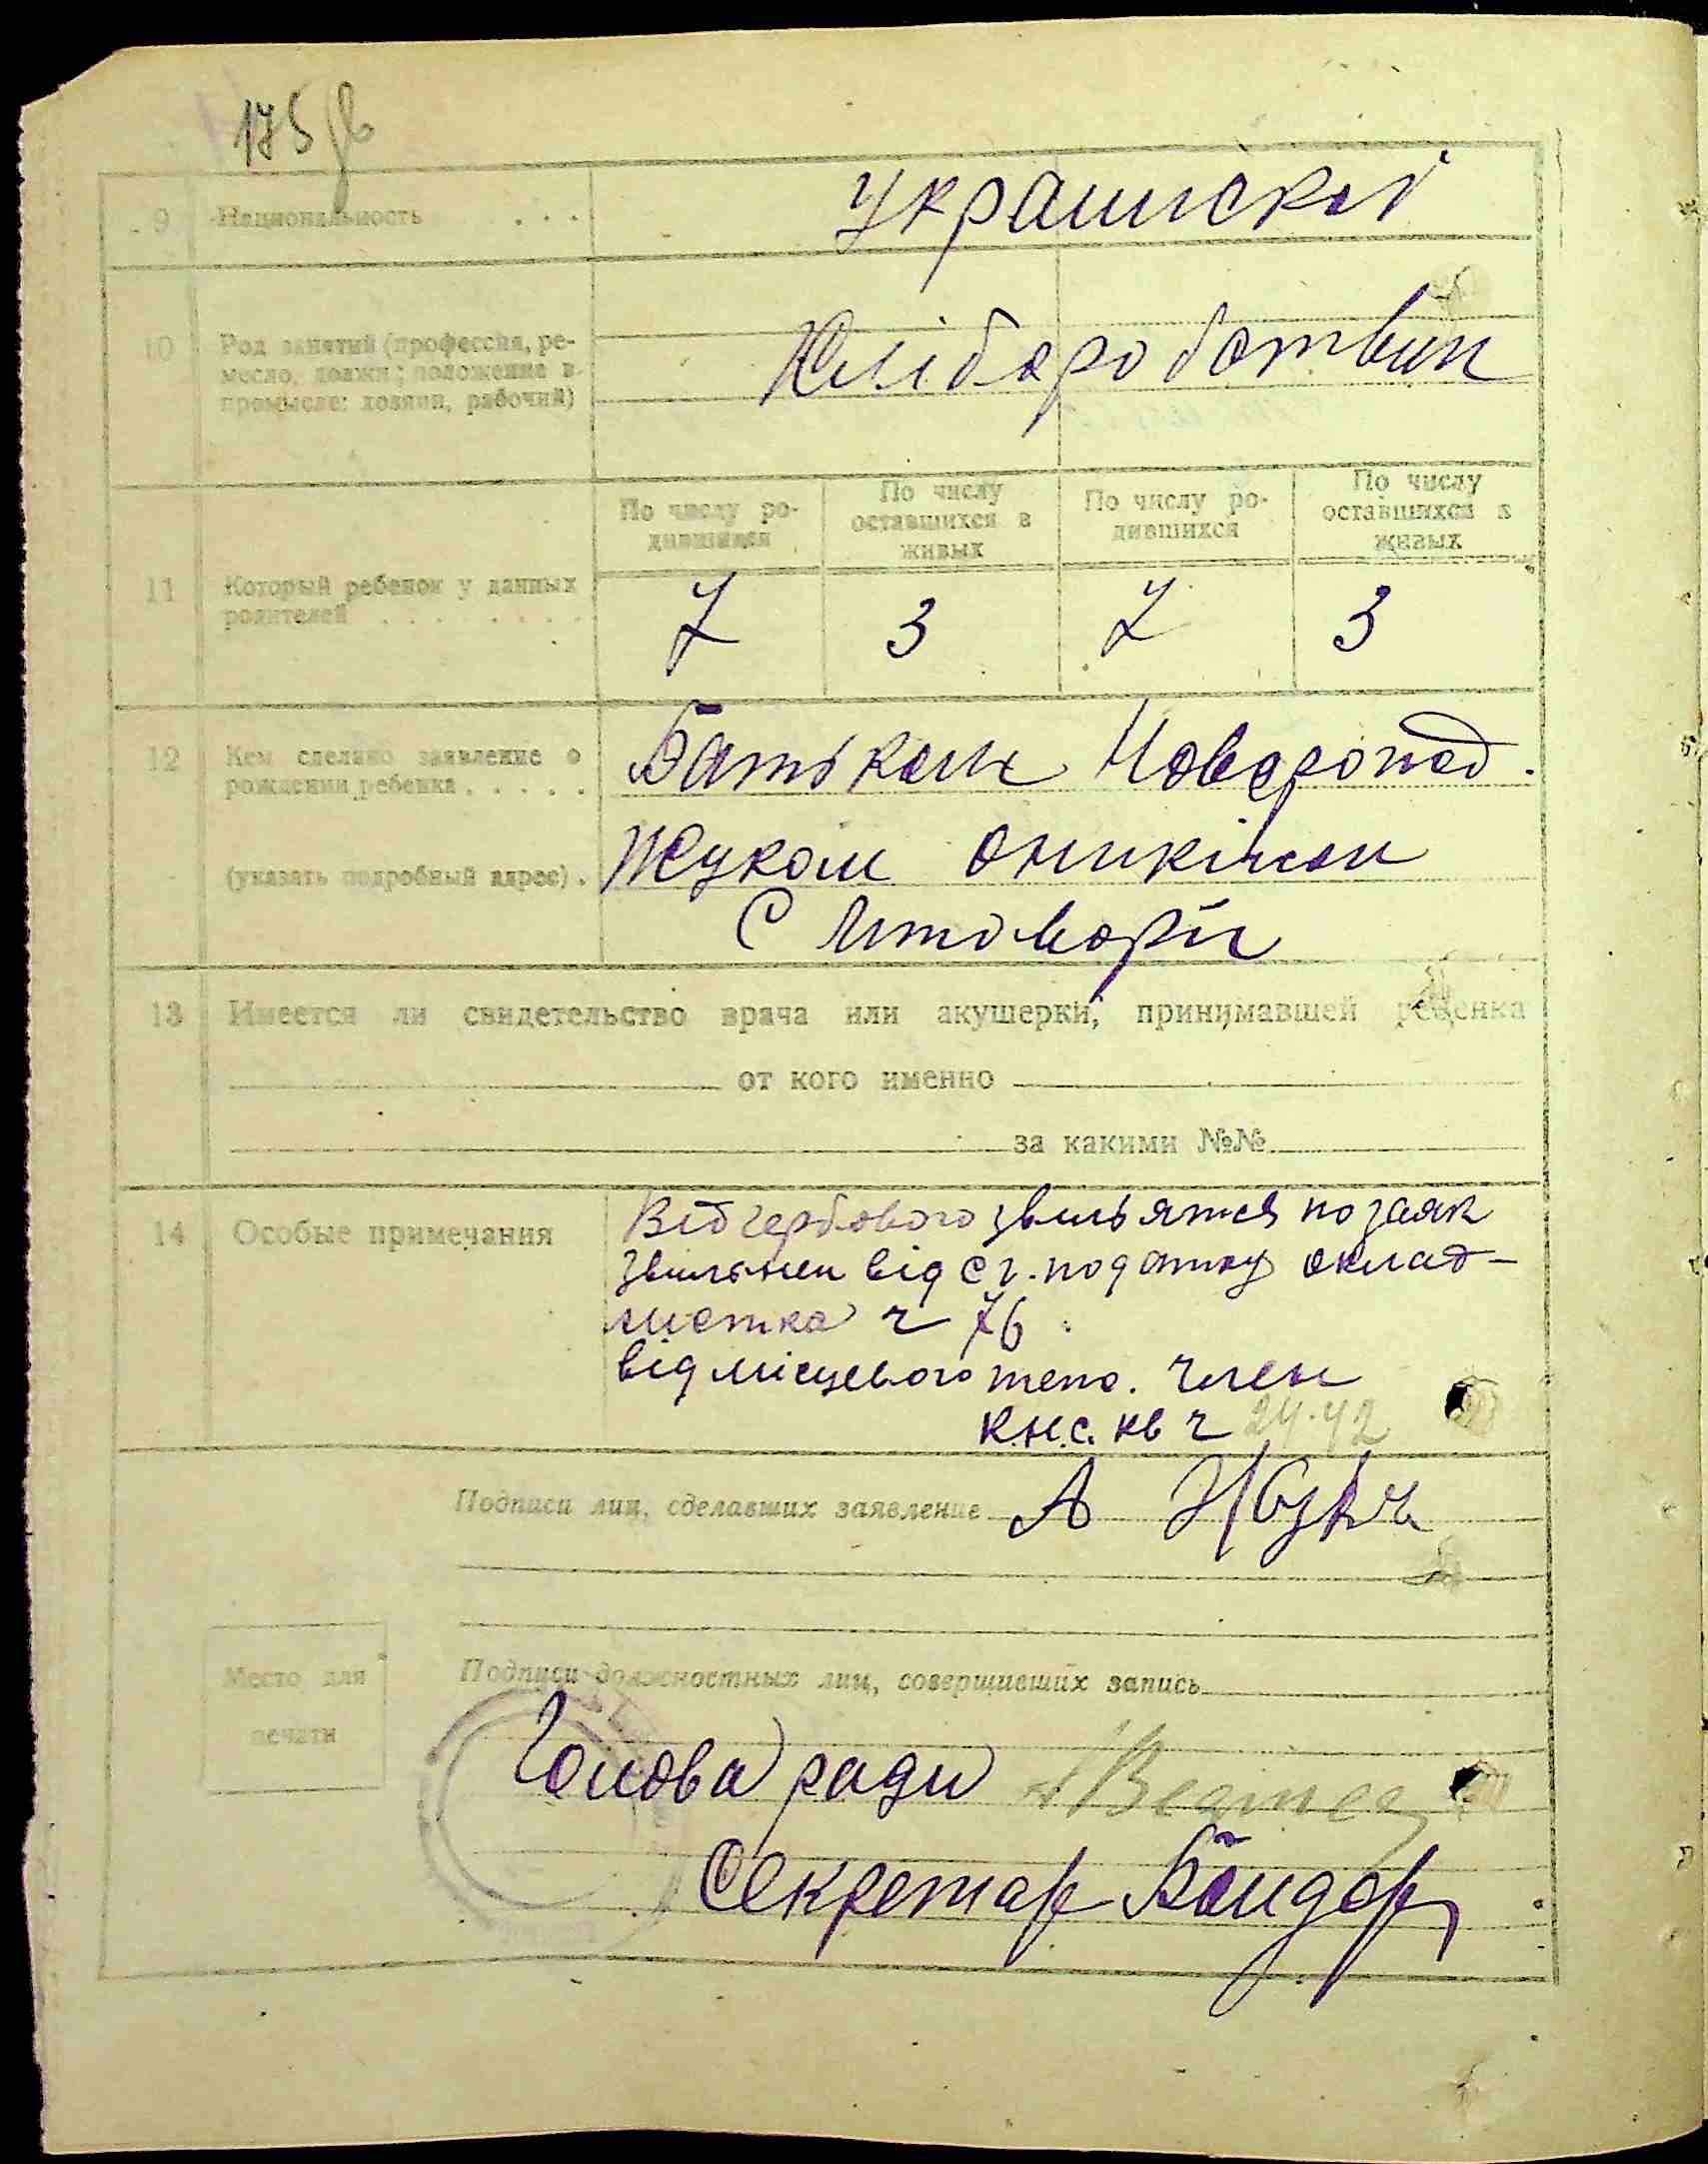 175
9 Национальность . . .
Украинской
10 Род занятий (профессия, ре-
месло, должн; положение в
промысле: хозяин, рабочий)
Хліборобством
11 Который ребенок у данных
родителей . . . . . . .
По числу ро-
дившихся
По числу
оставшихся в
живых
По числу ро-
дившихся
По числу
оставшихся в
живых
7 3 7 3
12 Кем сделано заявление о
рождении ребенка . . . . .
(указать подробный адрес) .
Батьком Новорожд.
Жуком Оникієм
С
13 Имеется ли свидетельство врача или акушерки, принимавшей ребенка
от кого именно
за какими №№
14 Особые примечания
Від гербового звільняться позаяк
звільнен від с г. податку оклад-
листка ч 76
від місцевого член
К.Н.С. кв ч 24.42
Подписи лиц, сделавших заявление А Жук
Место для
печати
Подписи должностных лиц, совершивших запись
Голова ради
Секретар Бондар